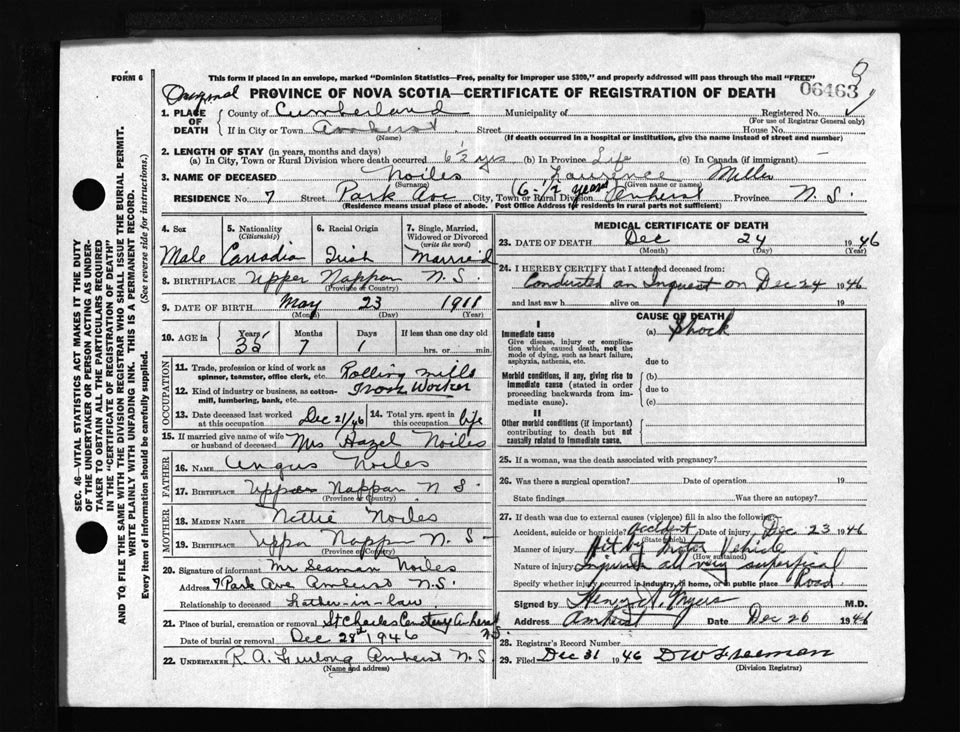 FORM 6
This form if placed in an envelope, marked "Dominion Statistics—Free, penalty for improper use $300," and properly addressed will pass through the mail "FREE"
Original PROVINCE OF NOVA SCOTIA—CERTIFICATE OF REGISTRATION OF DEATH 06463
1. PLACE OF DEATH County of Cumberland Municipality of Registered No.
(For use of Registrar General only)
If in City or Town Amherst. Street House No.
(Name) (If death occurred in a hospital or institution, give the name instead of street and number)
2. LENGTH OF STAY (in years, months and days)
(a) In City, Town or Rural Division where death occurred 6½ yrs (b) In Province Life (c) In Canada (if immigrant) —
3. NAME OF DECEASED Noiles Laurence Miller
(Surname) (Given name or names)
RESIDENCE No. 7 Street Park Ave City, Town or Rural Division (6-½ years) Amherst Province N.S.
(Residence means usual place of abode. Post Office Address for residents in rural parts not sufficient)
4. Sex Male
5. Nationality (Citizenship) Canadian
6. Racial Origin Irish
7. Single, Married, Widowed or Divorced (write the word) Married
8. BIRTHPLACE Upper Nappan N.S.
(Province or Country)
9. DATE OF BIRTH May 23 1911
(Month) (Day) (Year)
10. AGE in Years 35 Months 7 Days 1 If less than one day old
hrs. or min.
OCCUPATION
11. Trade, profession or kind of work as spinner, teamster, office clerk, etc. Rolling mills
12. Kind of industry or business, as cotton-mill, lumbering, bank, etc. Iron Worker
13. Date deceased last worked at this occupation Dec 21/46 14. Total yrs. spent in this occupation life
15. If married give name of wife or husband of deceased Mrs Hazel Noiles
FATHER
16. NAME Angus Noiles
17. BIRTHPLACE Upper Nappan N S.
(Province or Country)
MOTHER
18. MAIDEN NAME Nettie Noiles
19. BIRTHPLACE Upper Nappan N.S—
(Province of Country)
20. Signature of informant Mr Seaman Noiles
Address 7 Park Ave Amherst N.S.
Relationship to deceased Father-in-law
21. Place of burial, cremation or removal St Charles Cemetery Amherst N.S.
Date of burial or removal Dec 28th 1946
22. UNDERTAKER R. A. Furlong Amherst N.S.
(Name and address)
MEDICAL CERTIFICATE OF DEATH
23. DATE OF DEATH Dec 24 1946
(Month) (Day) (Year)
24. I HEREBY CERTIFY that I attended deceased from:
Conducted an Inquest on Dec 24 1946
and last saw h alive on 19
CAUSE OF DEATH
I
Immediate cause (a) Shock
Give disease, injury or complication which caused death, not the mode of dying, such as heart failure, asphyxia, asthenia, etc. due to
Morbid conditions, if any, giving rise to immediate cause (stated in order proceeding backwards from immediate cause). (b)
due to
(c)
II
Other morbid conditions (if important) contributing to death but not causally related to immediate cause.
25. If a woman, was the death associated with pregnancy?
26. Was there a surgical operation? Date of operation 19
State findings Was there an autopsy?
27. If death was due to external causes (violence) fill in also the following:
Accident, suicide or homicide? Accident Date of injury Dec 23 1946
(State which)
Manner of injury Hit by Motor Vehicle
(How sustained)
Nature of injury Injuries all very superficial
Specify whether injury occurred in industry, in home, or in public place Road
Signed by Henry A. Myers M.D.
Address Amherst Date Dec 26 1946
28. Registrar's Record Number
29. Filed Dec 31 1946 DW Freeman
(Division Registrar)
SEC. 46—VITAL STATISTICS ACT MAKES IT THE DUTY
OF THE UNDERTAKER OR PERSON ACTING AS UNDER-
TAKER TO OBTAIN ALL THE PARTICULARS REQUIRED
IN THE "CERTIFICATE OF REGISTRATION OF DEATH"
AND TO FILE THE SAME WITH THE DIVISION REGISTRAR WHO SHALL ISSUE THE BURIAL PERMIT.
WRITE PLAINLY WITH UNFADING INK. THIS IS A PERMANENT RECORD.
Every item of information should be carefully supplied. (See reverse side for instructions.)